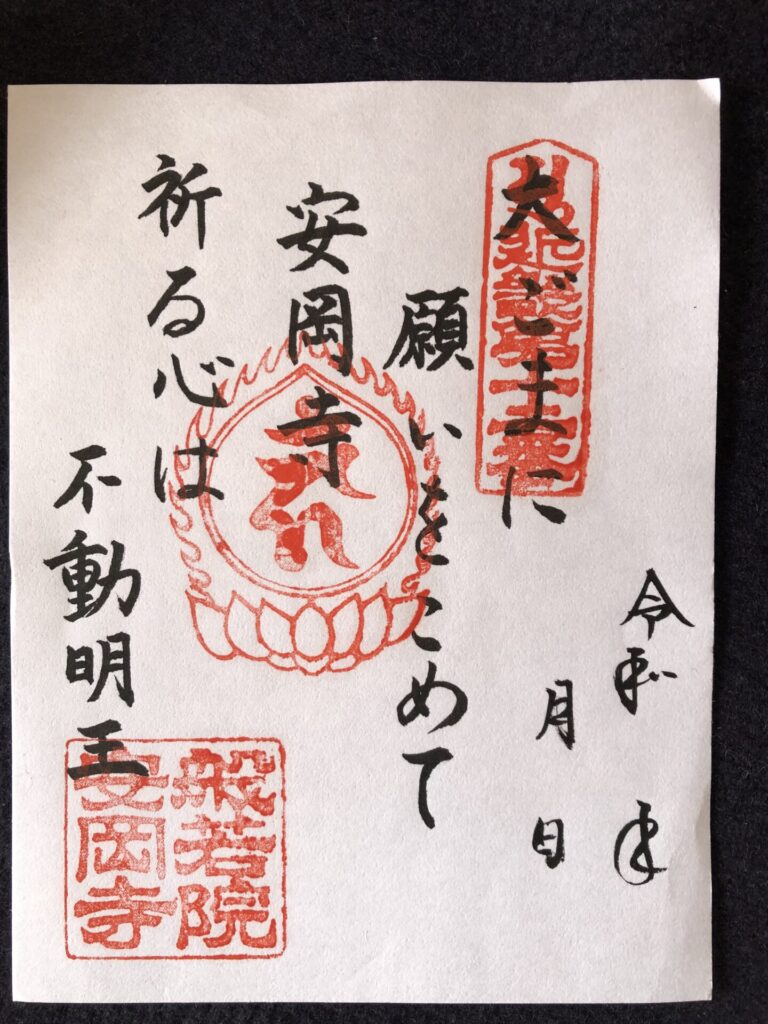 令和　年
月　日
大ごまに
願いをこめて
安岡寺
祈る心は
不動明王
般若院
安岡寺